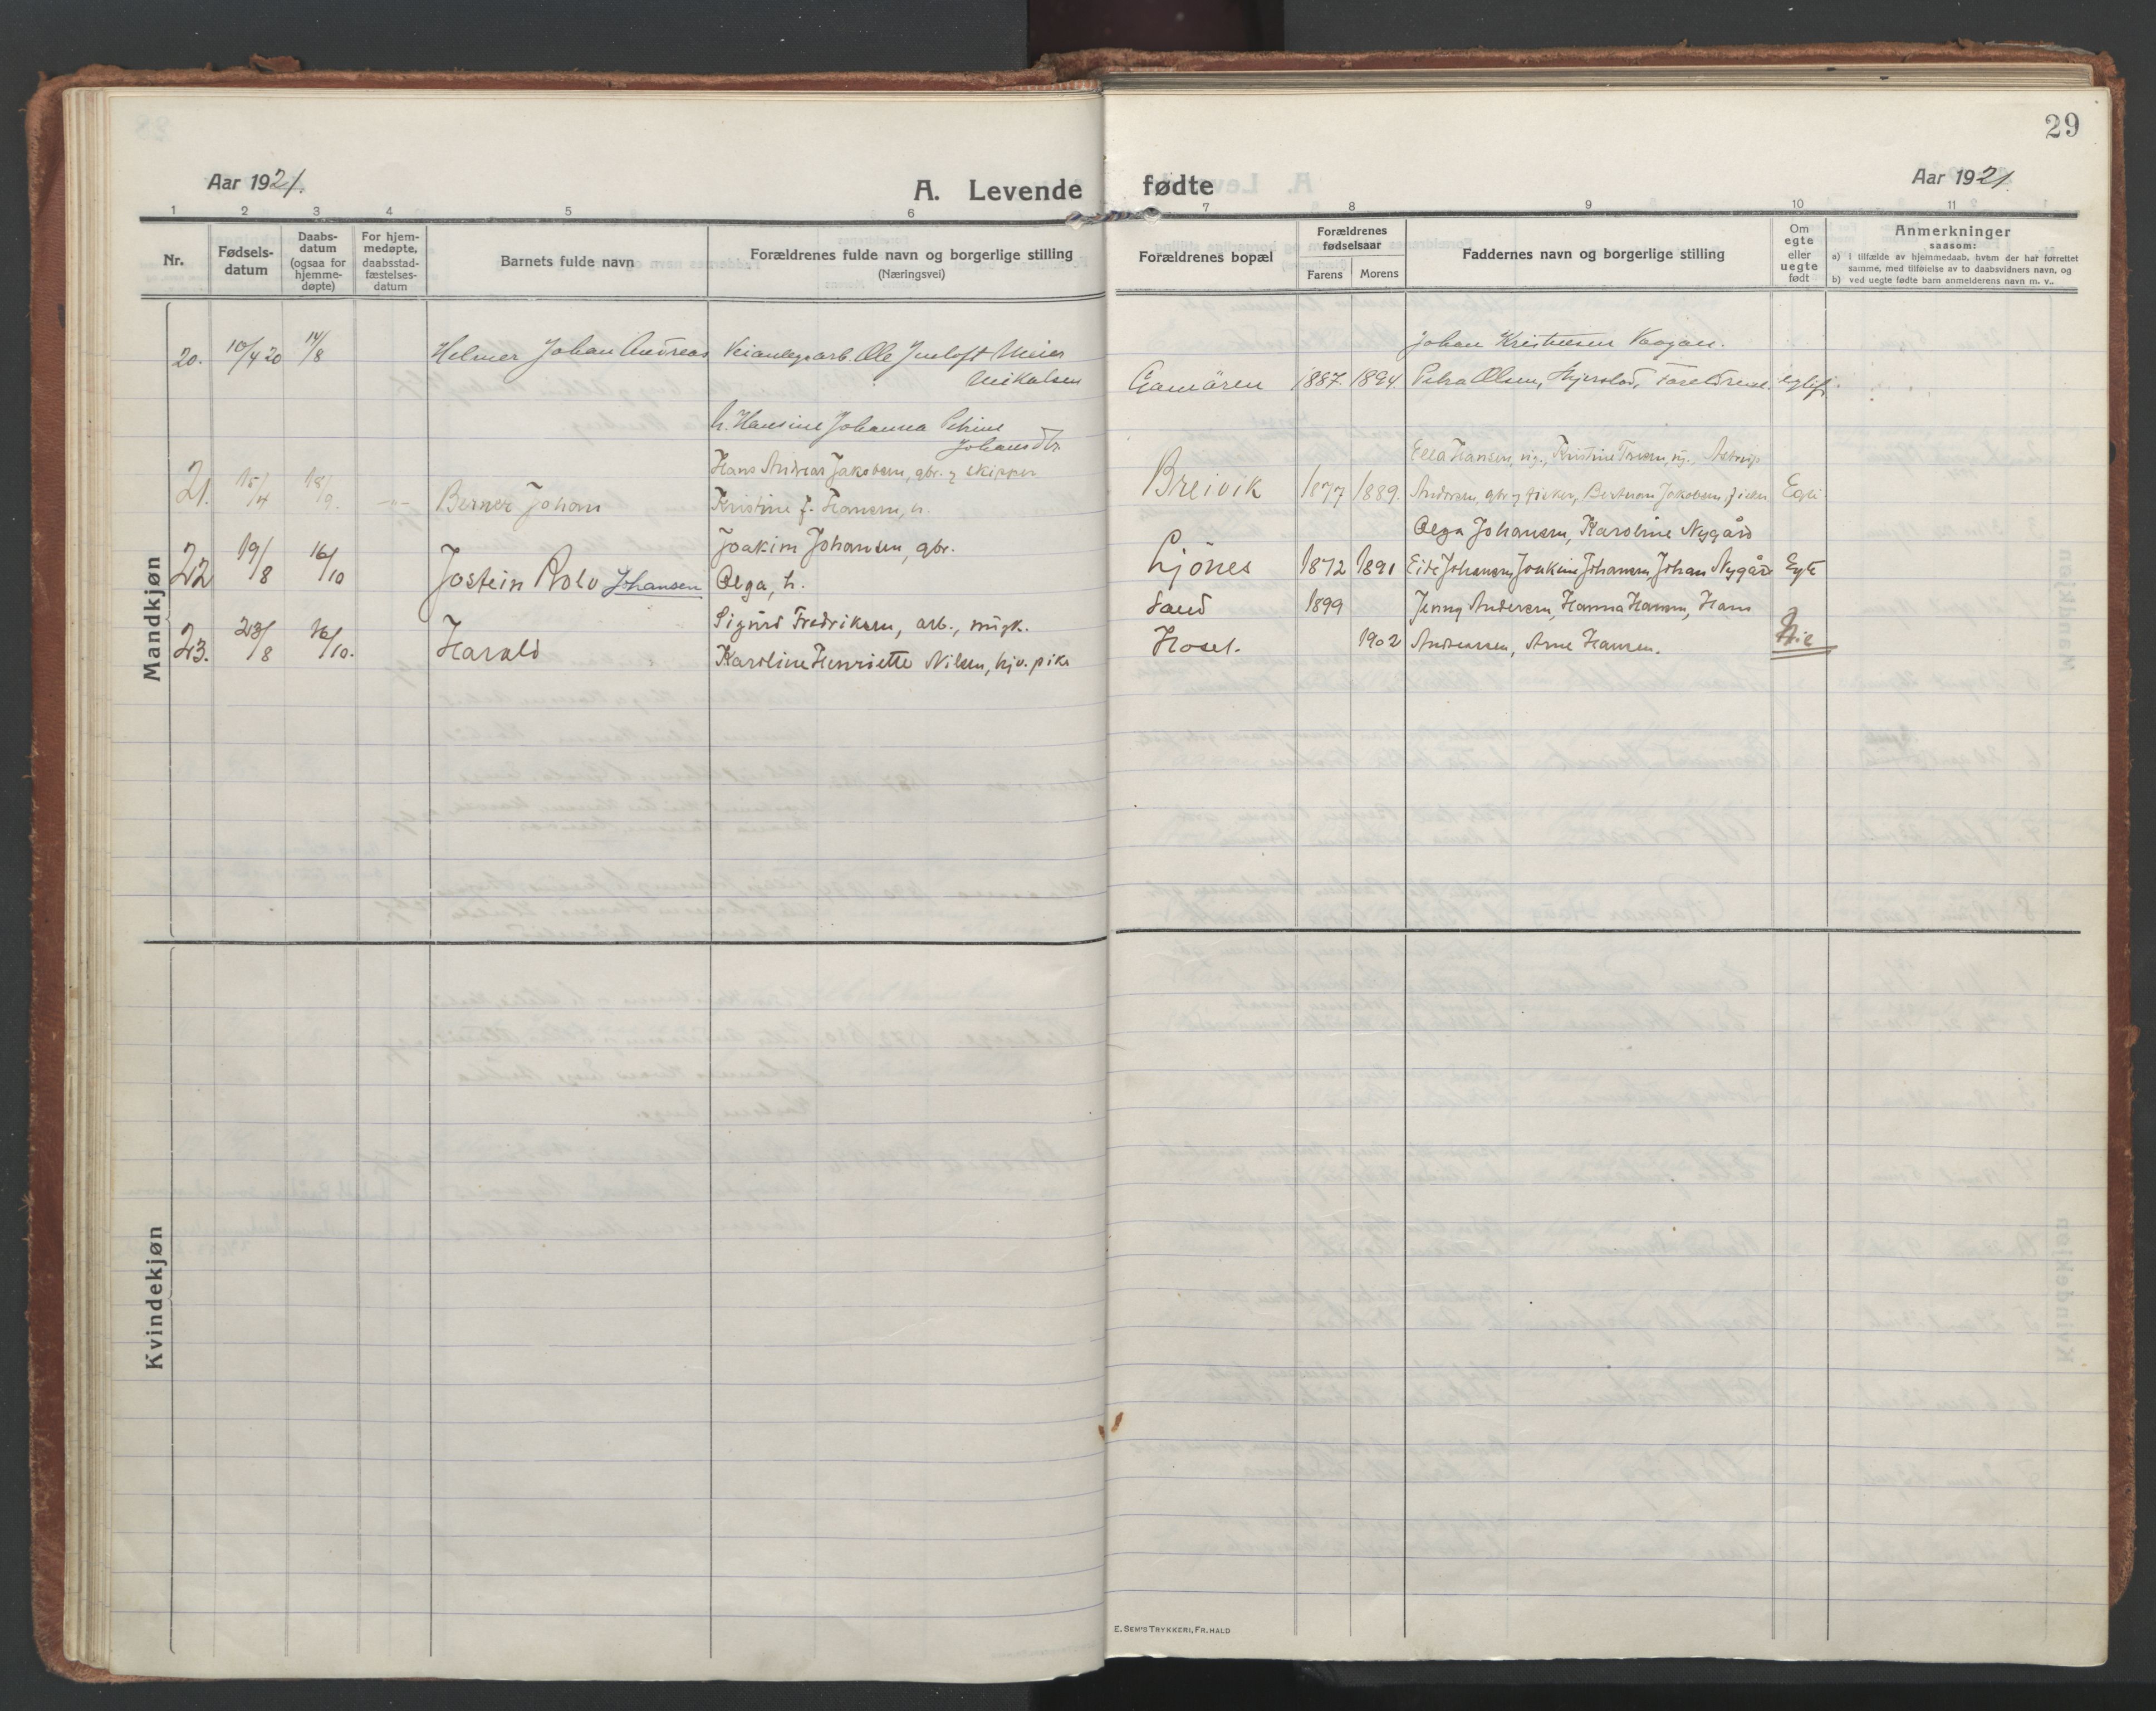 29
Aar 1921.
A. Levende fødte
Aar 1921
1 2 3 4 5 6 7 8 9 10 11
Nr.
Fødsels-
datum
Daabs-
datum
(ogsaa for
hjemme-
døpte)
For hjem-
medøpte,
daabsstad-
fæstelses-
datum
Barnets fulde navn
Forældrenes fulde navn og borgerlige stilling
(Næringsvei)
Forældrenes bopæl
Forældrenes
fødselsaar
Farens Morens
Faddernes navn og borgerlige stilling
Om
egte
eller
uegte
født
Anmerkninger
saasom:
a) i tilfælde av hjemmedaab, hvem der har forrettet
samme, med tilføielse av to daabsvidners navn, og
b) ved uegte fødte barn anmelderens navn m. v..
Mandkjøn
Johan Kristensen
20. 10/4 20 14/8 Helmer Johan Andreas Veianlegsarb. Ole Meier
Mikalsen
1887. 1894 Petra Olsen,
h. Hansine Johanna Petrine
Johansdtr
Hans Andreas Jakobsen, gbr. & skipper.
Ella Hansen, ug., Kristine
21. 15/4 18/9. -"- Berner Johan Kristine f. Hansen, h.
Breivik 1877 1889. Andersen, gbr & fisker, Jakobsen, fisker
Joakim Johansen, gbr.
Olga Johansen, Karoline Nygård
22 19/8 16/10 Jostein Rolv Johansen Olga, h.
Ljönes 1872 1891 Johansen, Joakim Johansen, Johan Nygård Egte
Sigurd Fredriksen, arb., ungk.
Sand 1899 Jenny Andersen, Hanna Hansen, Hans
23. 28/8 16/10. Harald Karoline Henriette Nilsen, hjv. pike
Hosel. 1902 Andreassen, Arne Hansen.
Kvindekjøn
E. SEM'S TRYKKERI, FR.HALD